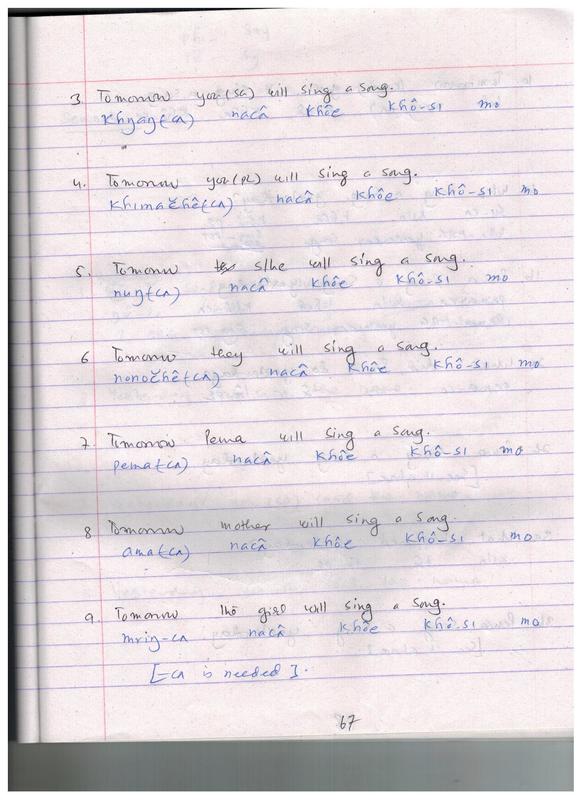 3. Tomorrow you (SG) will sing a song.
Khŋaŋ(cʌ) nacʌ̂ khôe khô-sɪ mo
4. Tomorrow you (pl) will sing a song.
Khɪmačhê(cʌ) nacʌ̂ khôe khô-sɪ mo
5. Tomorrow s/he will sing a song.
nuŋ(cʌ) nacʌ̂ khôe khô-sɪ mo
6 Tomorrow they will sing a song.
nonočhê(cʌ) nacʌ̂ khôe khô-sɪ mo
7. Tomorrow Pema will sing a song.
pema(cʌ) nacʌ̂ khôe khô-sɪ mo
8 Tomorrow mother will sing a song.
ama(cʌ) nacʌ̂ khôe khô-sɪ mo
9. Tomorrow girl will sing a song.
mriŋ-cʌ nacʌ̂ khôe khô-sɪ mo
[-cʌ is needed].
67